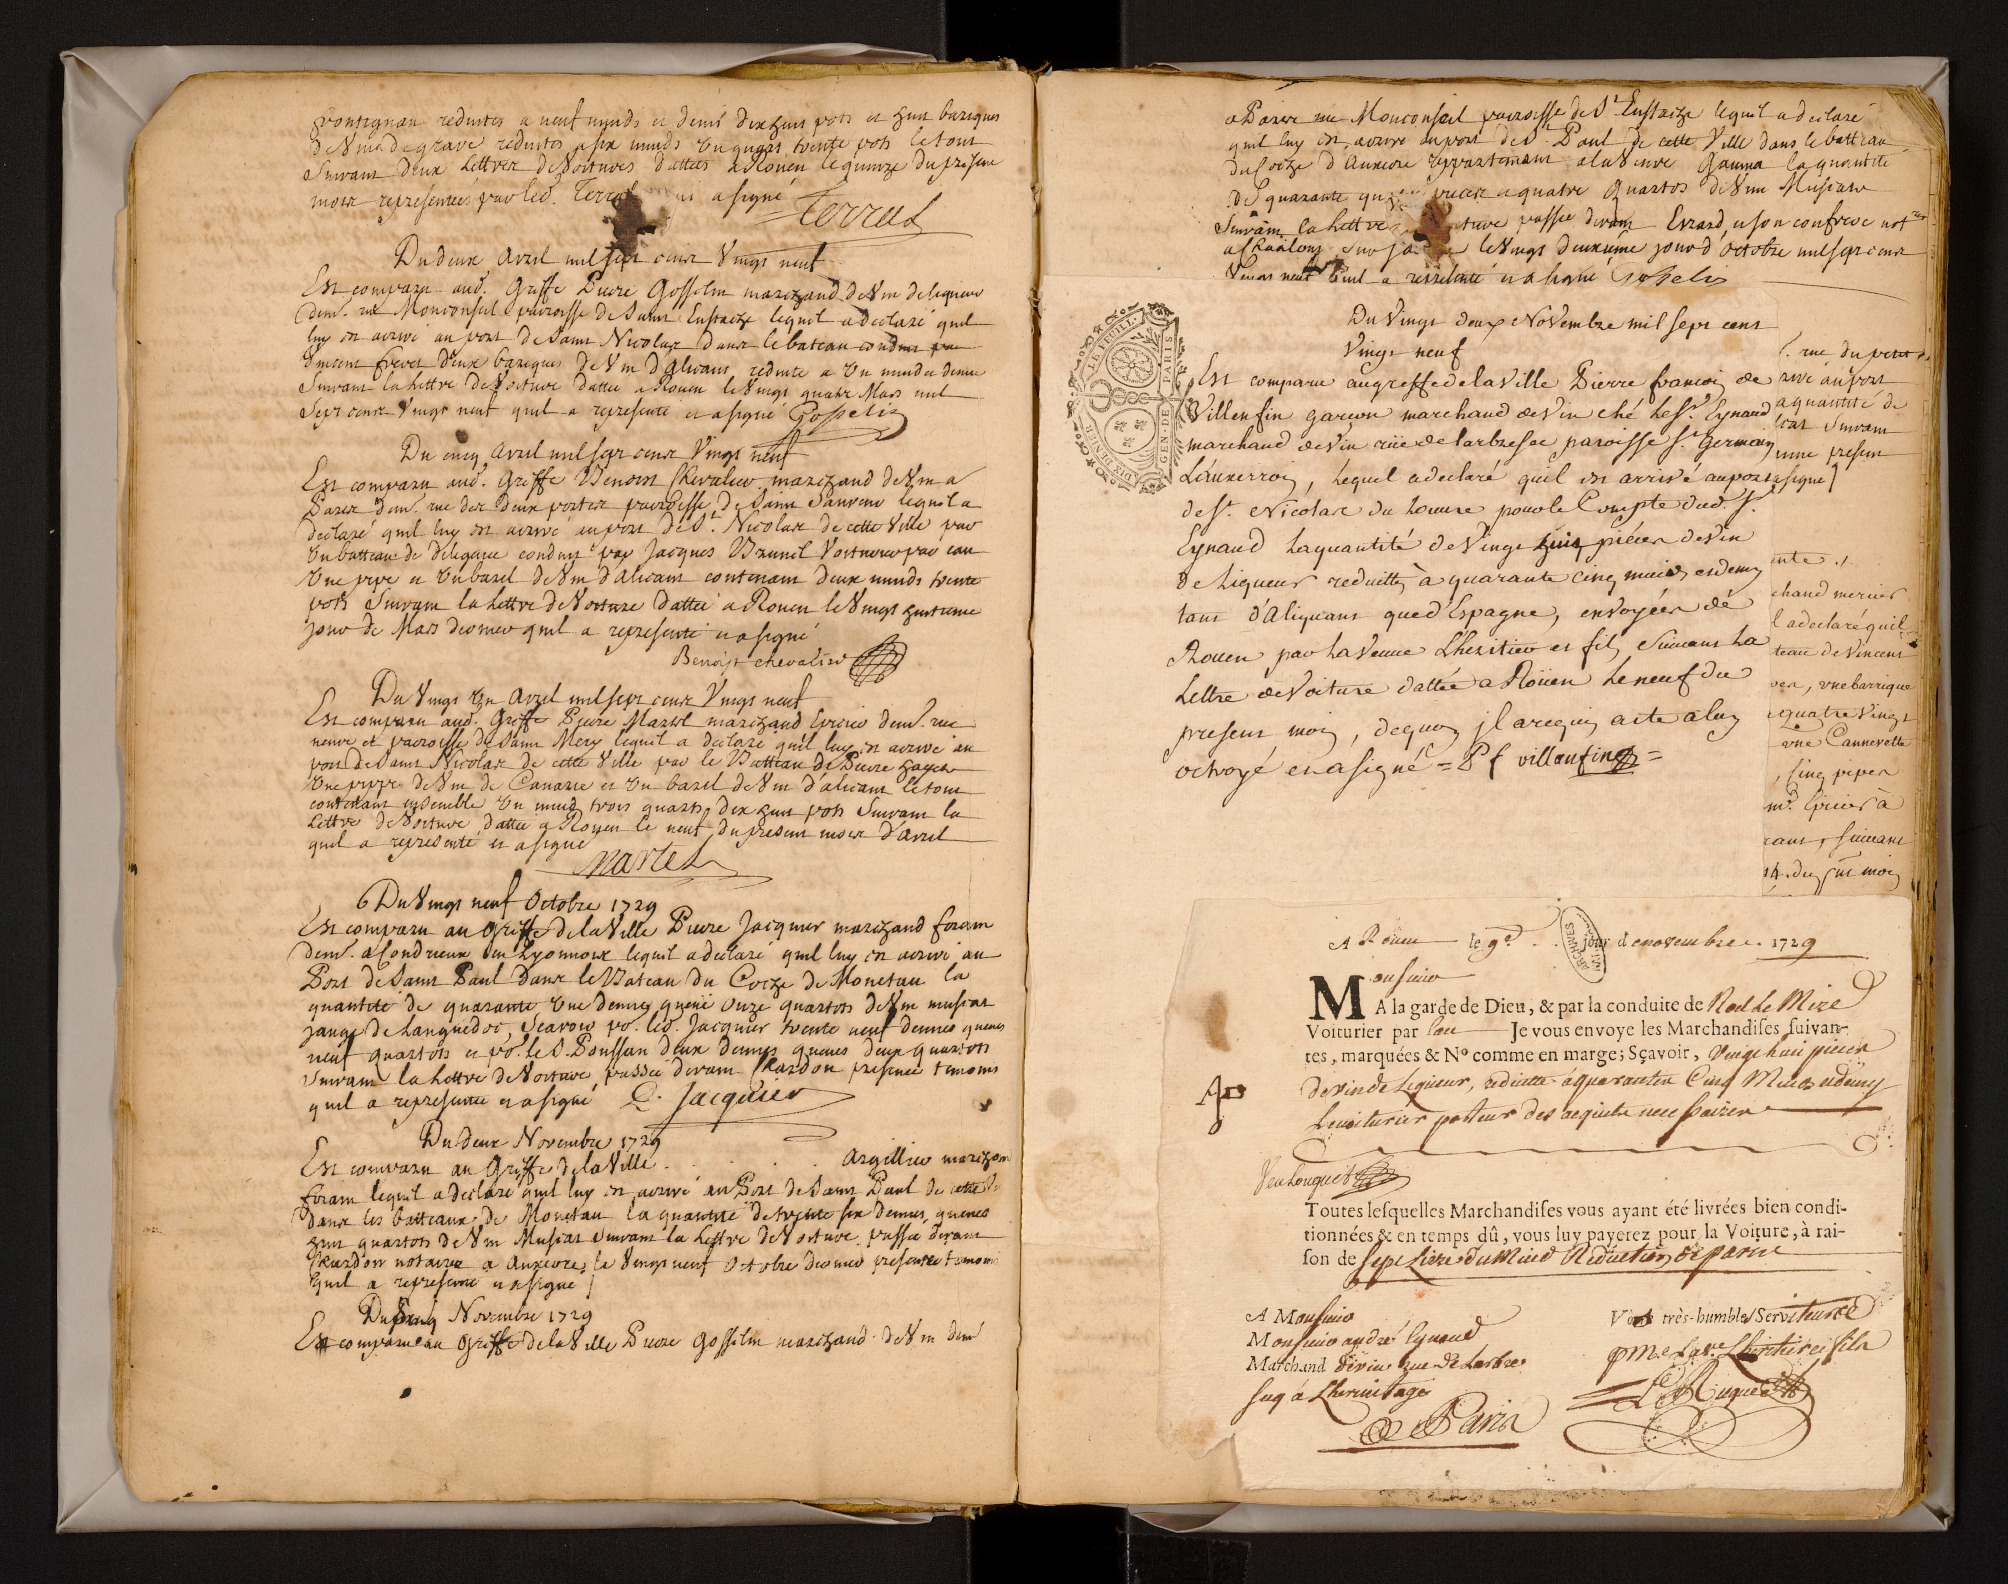 frontignan reduittes a neuf muids et demi dix huit pots et huit bariques
de Vin de grave reduites a six muids un quart trente pots le tout
Suivant deux Lettres de Voitures dattées a Rouen le quinze du present
mois representées par led. Terral qui a signé
Terral
Du deux Avril mil sept cent Vingt neuf
Est comparu aud. Greffe Pierre Gosselin marchand de Vin de liqueur
dem.t rue Monconseil paroisse de Saint Eustache lequel a declaré quil
luy est arrivé au port de Saint Nicolas dans le bateau conduit par
Vincent frevet deux bariques de Vin d'Alicant reduite a un muid et demie
Suivant la Lettre de Voiture dattée a Rouen le Vingt quatre Mars mil
Sept cent Vingt neuf quil a representé et a signé Gosselin
Du cinq Avril mil sept cent Vingt neuf
Est comparu aud. Greffe Benoist Chevalier marchand de Vin a
Paris dem.t rue des deux portes paroisse de Saint Sauveur lequel a
declaré quil luy est arrivé au port de St. Nicolas de cette Ville par
un batteau de Delegarre conduit par Jacques Brunil Voiturier par eau
une pipe et un baril de Vin d'Alicant contenant deux muids trente
pots Suivant la Lettre de Voiture dattée a Rouen le Vingt huitieme
jour de Mars dernier quil a representé et a signé
Benoist chevalier
Du Vingt un Avril mil sept cent Vingt neuf
Est comparu aud. Greffe Pierre Martel marchand Epicier dem.t rue
neuve et paroisse de Saint Mery lequel a declaré quil luy est arrivé au
port de Saint Nicolas de cette Ville par le Batteau de Pierre
une pipe de Vin de Canarie et un baril de Vin d'alicant le tout
contenant ensemble un muid trois quarts dix huit pots Suivant la
Lettre de Voiture dattée a Rouen le neuf du present mois d'Avril
quil a representé et a signé
Martel
Du Vingt neuf Octobre 1729
Est comparu au Greffe de la Ville Pierre Jacquier marchand forain
dem.t a Condrieux en Lyonnois lequel a declaré quil luy est arrivé au
Port de Saint Paul dans le Bateau du Coche de Monetau la
quantité de quarante une demie queüe onze quartots de Vin muscat
jauge de Languedoc, Scavoir po. led. Jacquier trente neuf demies queues
neuf quartots et po. le S. Poussan deux demies queues deux quartots
Suivant la Lettre de Voiture passée devant Chardon presence temoins
quil a representée et a signé P. Jacquier
Du deux Novembre 1729
Est comparu au Greffe de la Ville . . . . . Argillier marchand
forain lequel a declaré quil luy est arrivé au Port de Saint Paul de cette
dans les batteaux de Monetau la quantité de trente six demies queues
huit quartots de Vin Muscat Suivant la Lettre de Voiture passée devant
Chardon notaire a Auxerre le Vingt neuf Octobre dernier presence temoins
quil a representé et a signé
Du Cinq Novembre 1729
Est comparu au Greffe de la Ville Pierre Gosselin marchand de Vin dem.t
a Paris rue Monconseil paroisse de St. Eustache lequel a declaré
quil luy est arrivé au port de St. Paul de cette Ville dans le batteau
du Coche d'Auxerre appartenant a la Veuve Gauna la quantité
de quarante pieces et quatre Quartos de Vin Muscat
Suivant la Lettre de Voiture passée devant Errard et son confrere not.res
a Chaalons Sur le Vingt deuxieme jour d'octobre mil sept cent
Vingt neuf quil a representé et a signé Gosselin
LE FEUILL.
GEN. DE PARIS
DIX DENIER
Du Vingt deux Novembre mil sept cent
Vingt neuf
Est comparu au greffe de la Ville Pierre francois de
Villenfin garcon marchand de Vin ché le Sr. Eynaud
marchand de Vin rüe de larbresec paroisse St. Germain
Lauxerrois, Lequel a declaré quil est arrivé au port
de St. Nicolas du Louvre pour le Compte dud. S.
Eynaud La quantité de Vingt huit piéces de Vin
de Liqueur reduitte à quarante cinq muids et demy
tant d'Aliquant que d'Espagne, envoyées de
Roüen par La Veuve L'heritier et fils Suivant La
Lettre de Voiture dattée a Roüen Le neuf du
present mois, de quoy jl a requis acte a luy
octroyé et a signé = P f villenfin =
rue du petit
rivé au port
a quantité de
Suivant
present
signé
chand mercier
l a declaré quil
teau de Vincent
, une barrique
quatre Vingt
une Cannevette
, Cinq pipes
md. Epicier à
cant, suivant
du pnt mois
A Roüen le 9e. jour de novembre 1729
ARCHIVES
Monsieur
A la garde de Dieu, & par la conduite de Noel Le Mire
Voiturier par Eau Je vous envoye les Marchandises suivan-
tes, marquées & No comme en marge; Sçavoir, Vingt huit pieces
de vin de Liqueur, reduitte a quarante Cinq Muids et demy
Le voiturier porteur des acquits necessaires
Toutes lesquelles Marchandises vous ayant été livrées bien condi-
tionnées & en temps dû, vous luy payerez pour la Voiture, à rai-
son de Sept Livres du Muid Reduction de paris
A Monsieur
Monsieur andré Eynaud
Marchand de vin rue de Larbre
seq à Lhermitage
A Paris
Votre très-humble Serviteur
pr Me. La Ve. Lheritier et fils